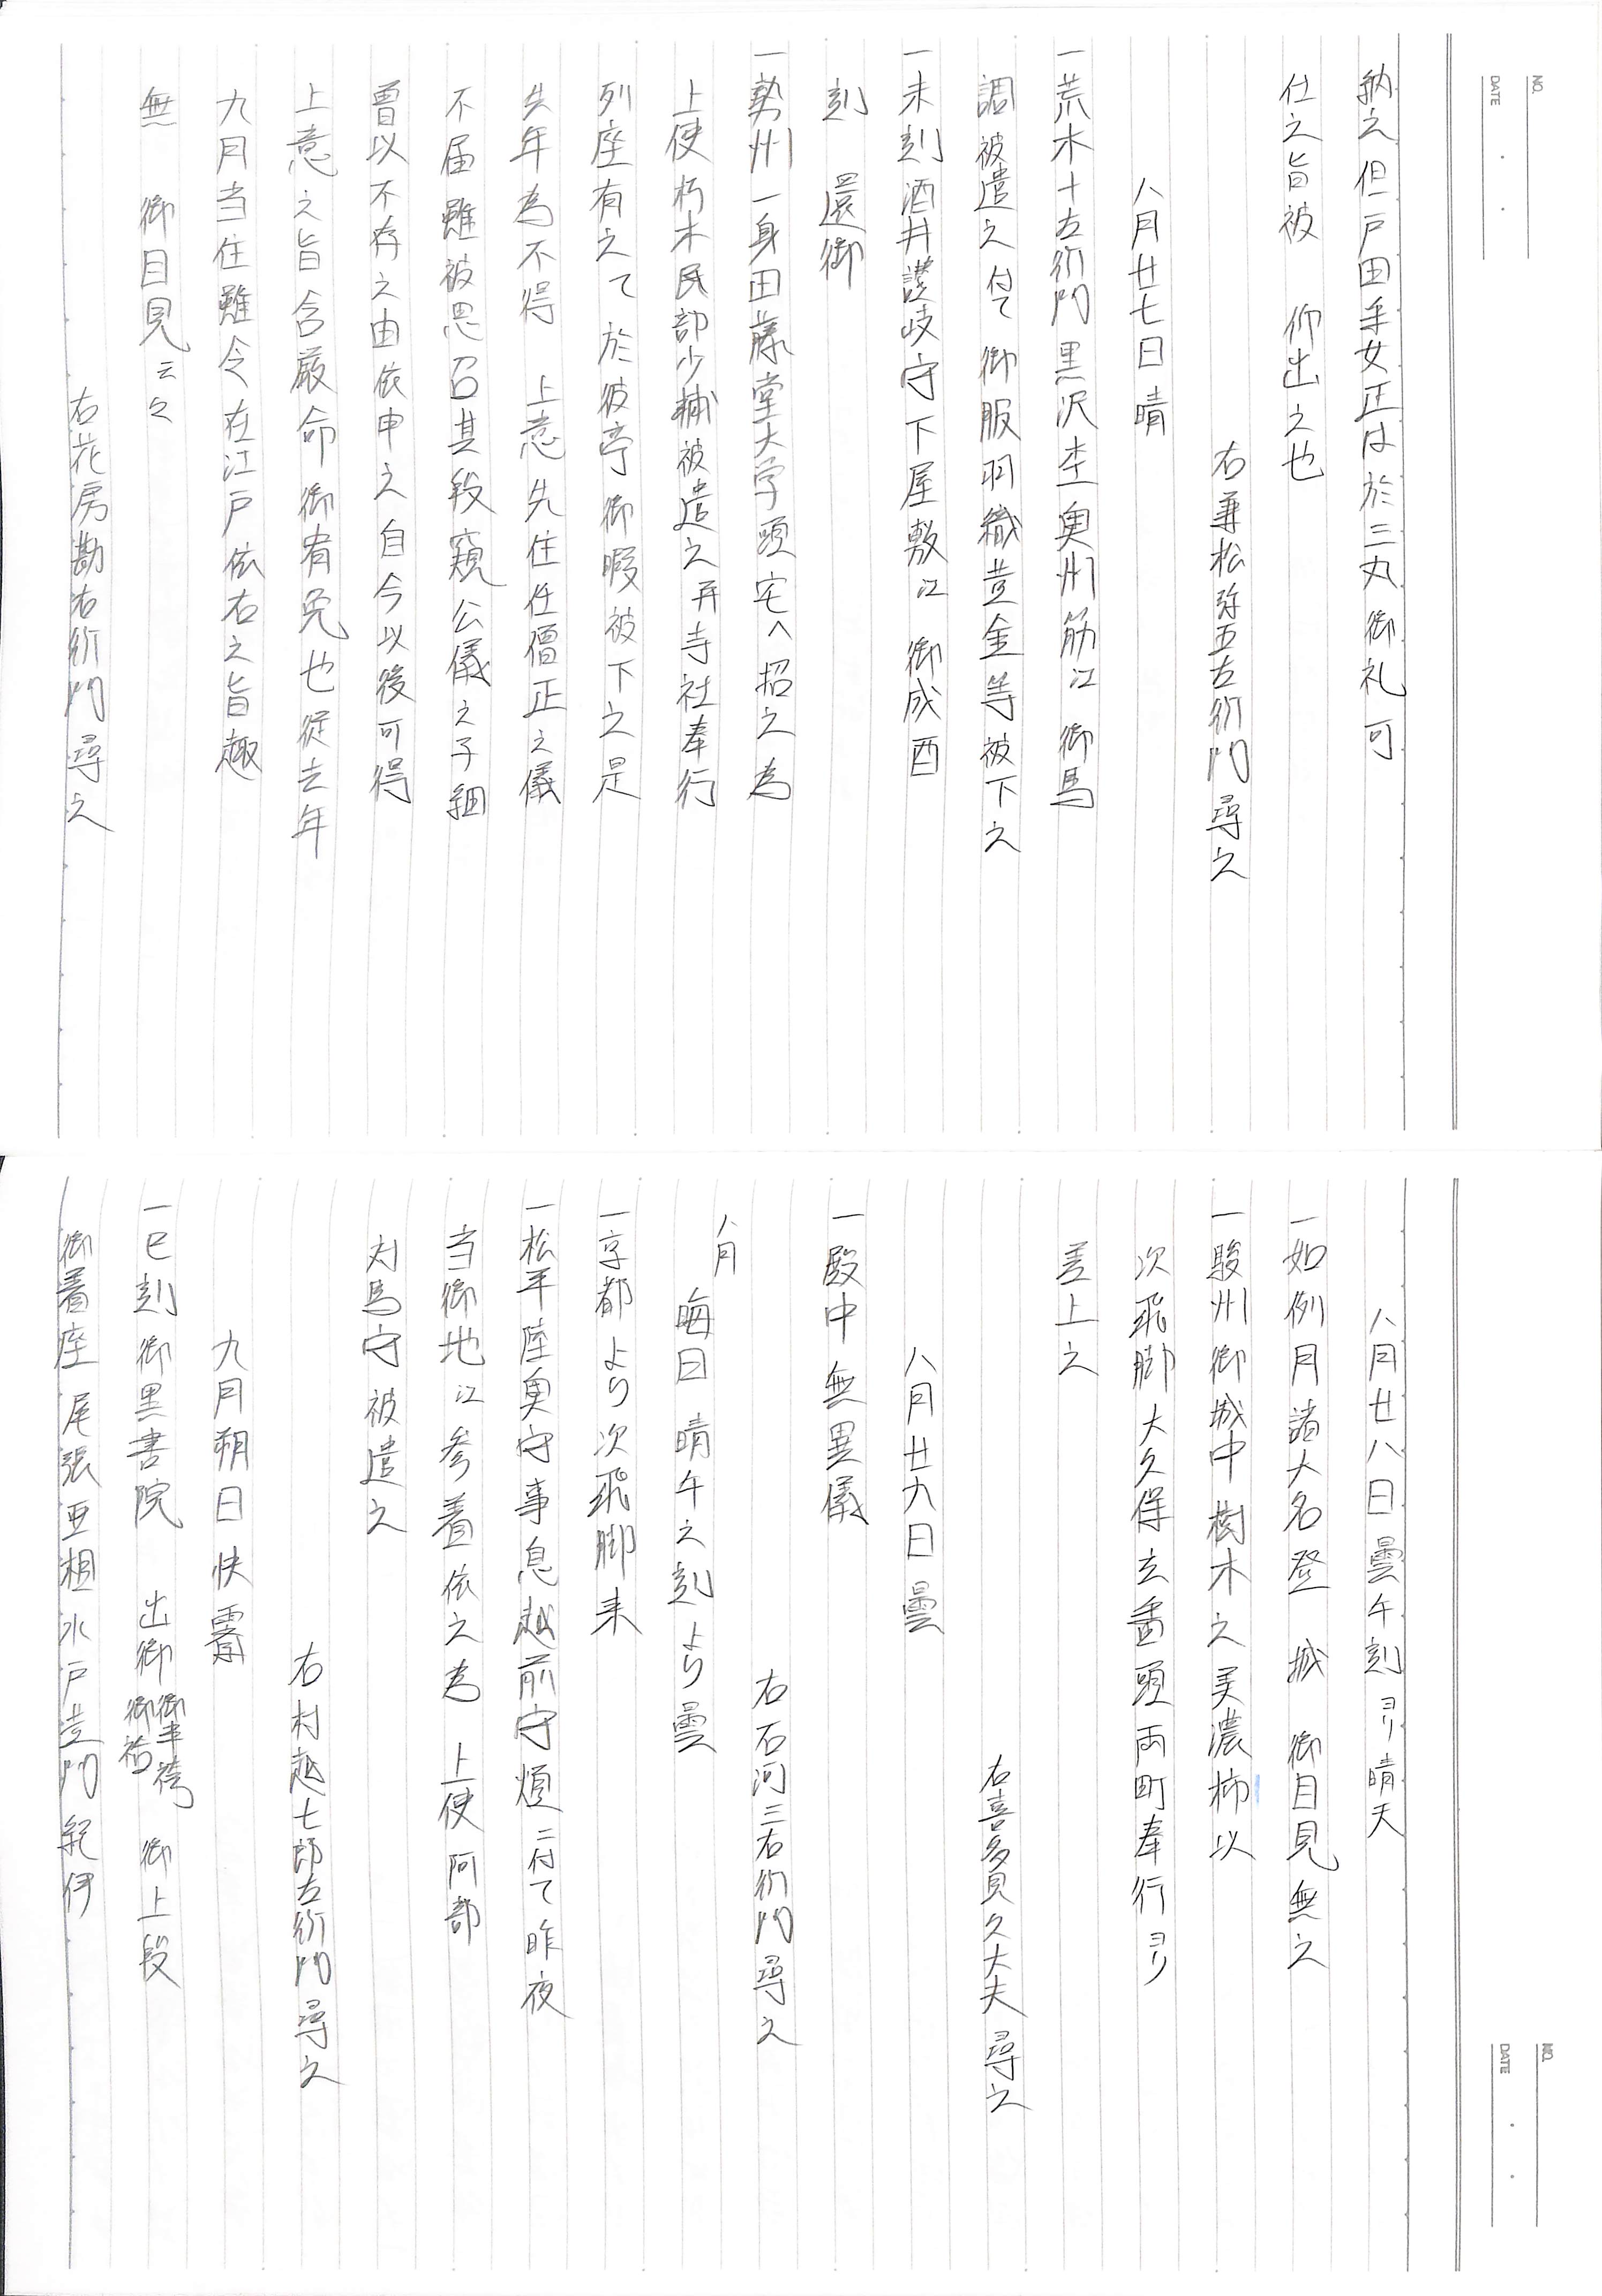 NO.
DATE
納之但戸田采女正は於三丸御礼可
仕之旨被　仰出之也
右兼松弥五左衛門尋之
八月廿七日晴
一荒木十左衛門黒沢杢奥州筋江御馬
調被遣之付て御服羽織並金等被下之
一未刻酒井讃岐守下屋敷江　御成酉
刻　還御
一勢州一身田藤堂大学頭宅へ招之為
上使朽木民部少輔被遣之并寺社奉行
列座有之て於彼亭御暇被下之是
先年為不得　上意先住任僧正之儀
不届雖被思召其段窺公儀之子細
曽以不存之由依申之自今以後可得
上意之旨含厳命御宥免也従去年
九月当住雖令在江戸依右之旨趣
無　御目見云々
右花房勘右衛門尋之
NO.
DATE
八月廿八日曇午刻ヨリ晴天
一如例月諸大名登　城　御目見無之
一駿州御城中樹木之美濃柿以
次飛脚大久保玄番頭両町奉行ヨリ
差上之
右喜多見久大夫尋之
八月廿九日曇
一殿中無異儀
右石河三右衛門尋之
八月
晦日晴午之刻より曇
一京都より次飛脚来
一松平陸奥守事息越前守煩ニ付て昨夜
当御地江参着依之為　上使阿部
対馬守被遣之
右村越七郎左衛門尋之
九月朔日快霽
一巳刻御黒書院　出御御半袴御袷　御上段
御着座尾張亜相水戸黄門紀伊